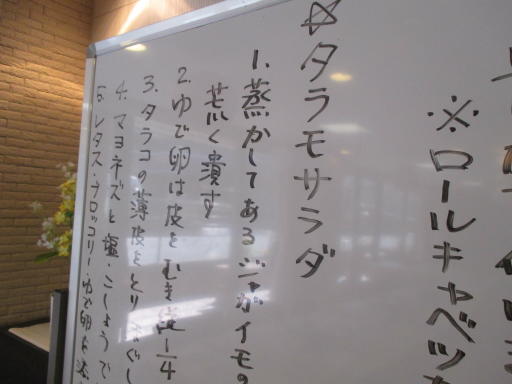 ※ロールキャベツ
☆タラモサラダ
1.蒸かしてあるジャガイモの
荒く潰す
2.ゆで卵は皮をむき縦1/4
3.タラコの薄皮をとりほぐし
4.マヨネズと塩・こしょうで
5.レタス・ブロッコリー・ゆで卵を